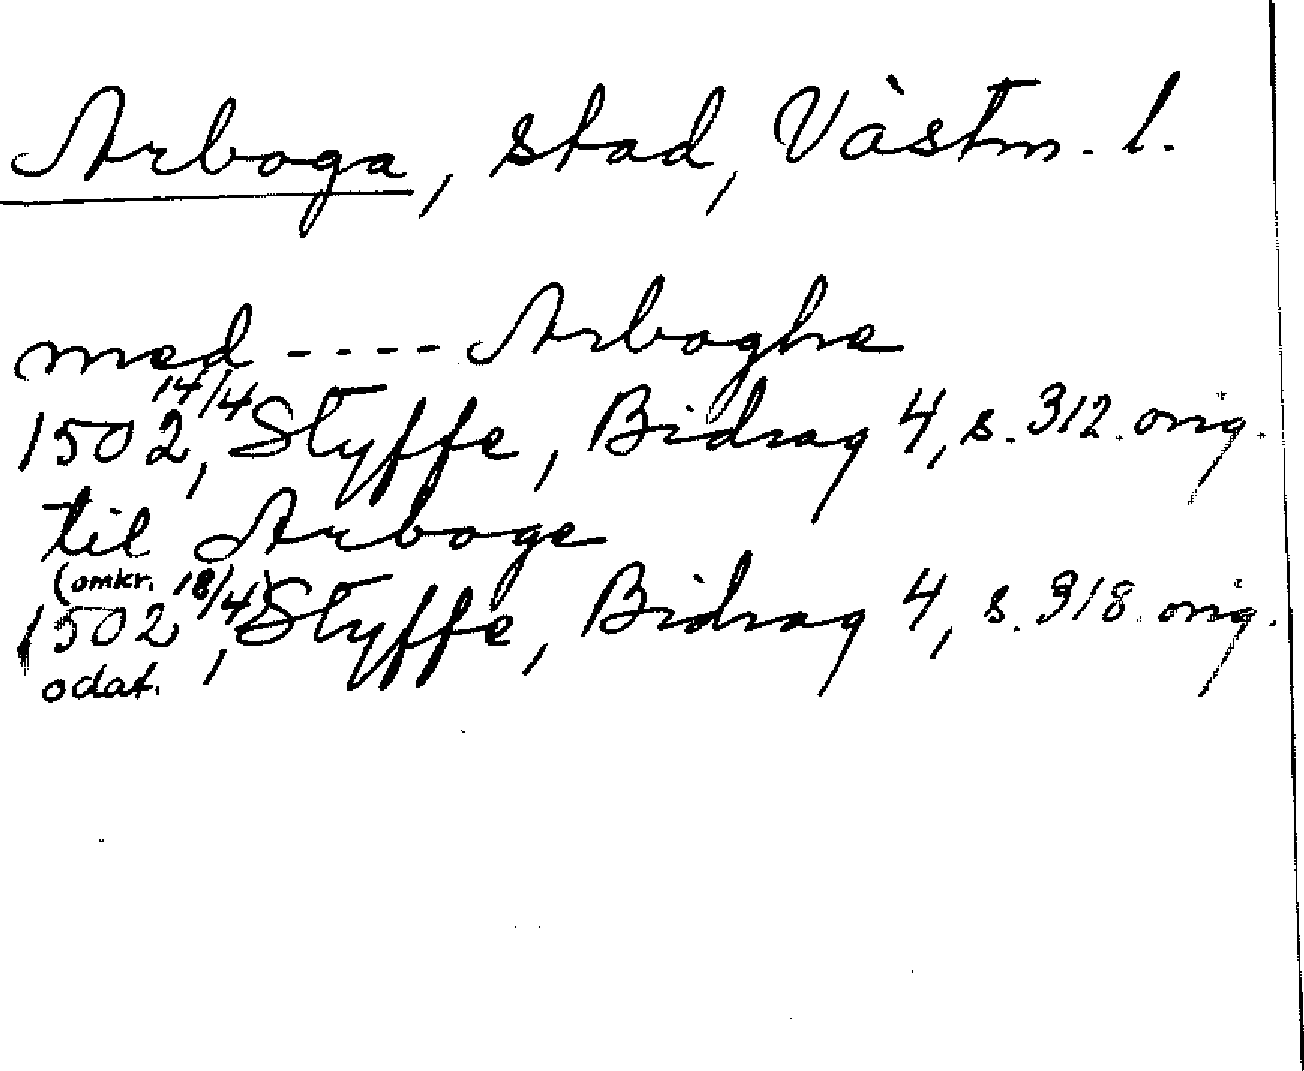 Arboga, stad, Västm. l.
med ---- Arboghe
14/4
1502, Styffe, Bidrag 4, s. 312. orig.
til Arboge
(omkr. 18/4)
1502, Styffe, Bidrag 4, s. 318. orig.
odat.